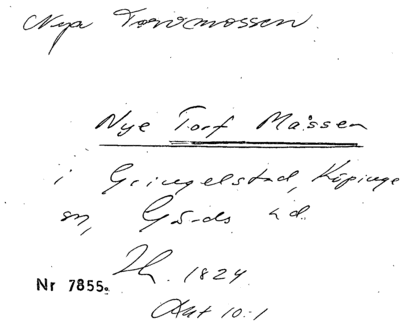 Nya Torvmossen.
Nye Torf Måssen
i Gringelstad, Köpinge
sn, Gärds hd.
1824
Nr 7855.
Akt 10:1